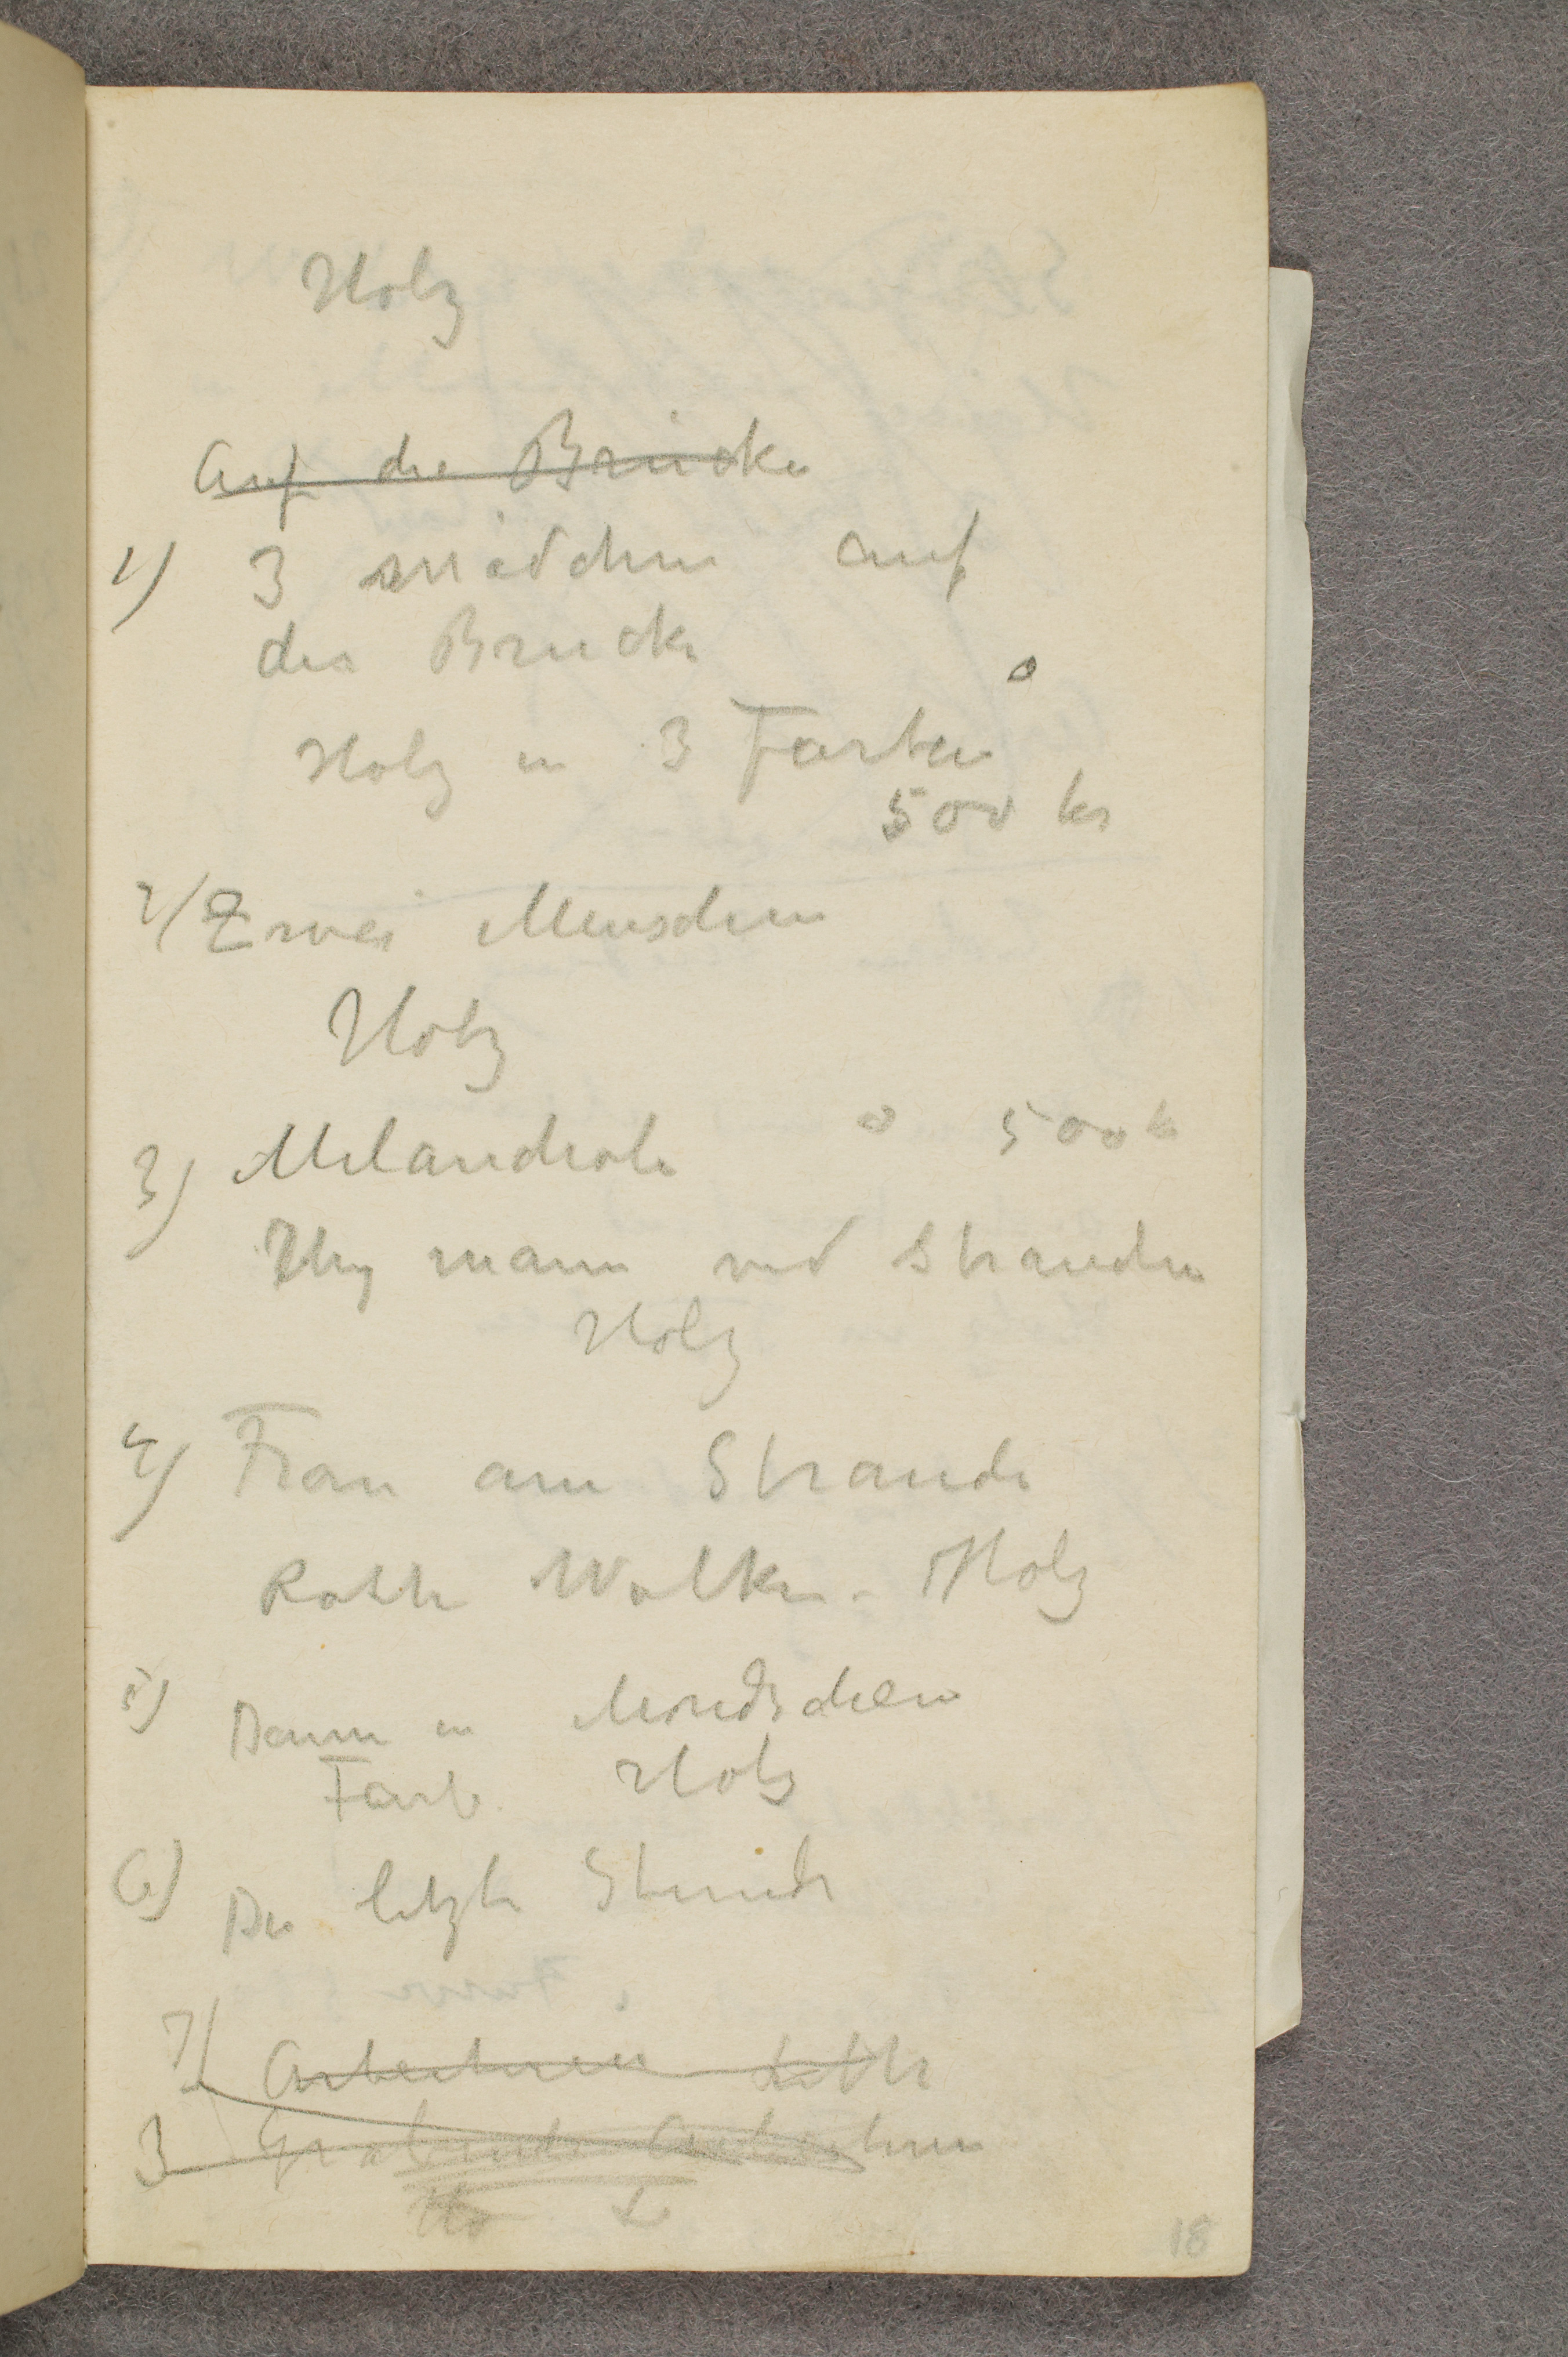 Holz
Auf die Brücke
1) 3 Mädchen auf
der Brücke
Holz in 3 Farben
500 kr
2) Zwei Menschen
Holz
3) Melancholi 500 k
Ung mann ved stranden
Holz
4) Frau am Strande
Rothe Wolken. Holz
5) Damm in Mondschein
Farb. Holz
6) Die letzte Stunde
7) Arbeiteren Lith
3 Grabende Arbeitern
Ho L
18